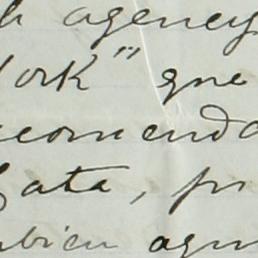 agency
York" que
recomenda
Cata, pr
bien agu